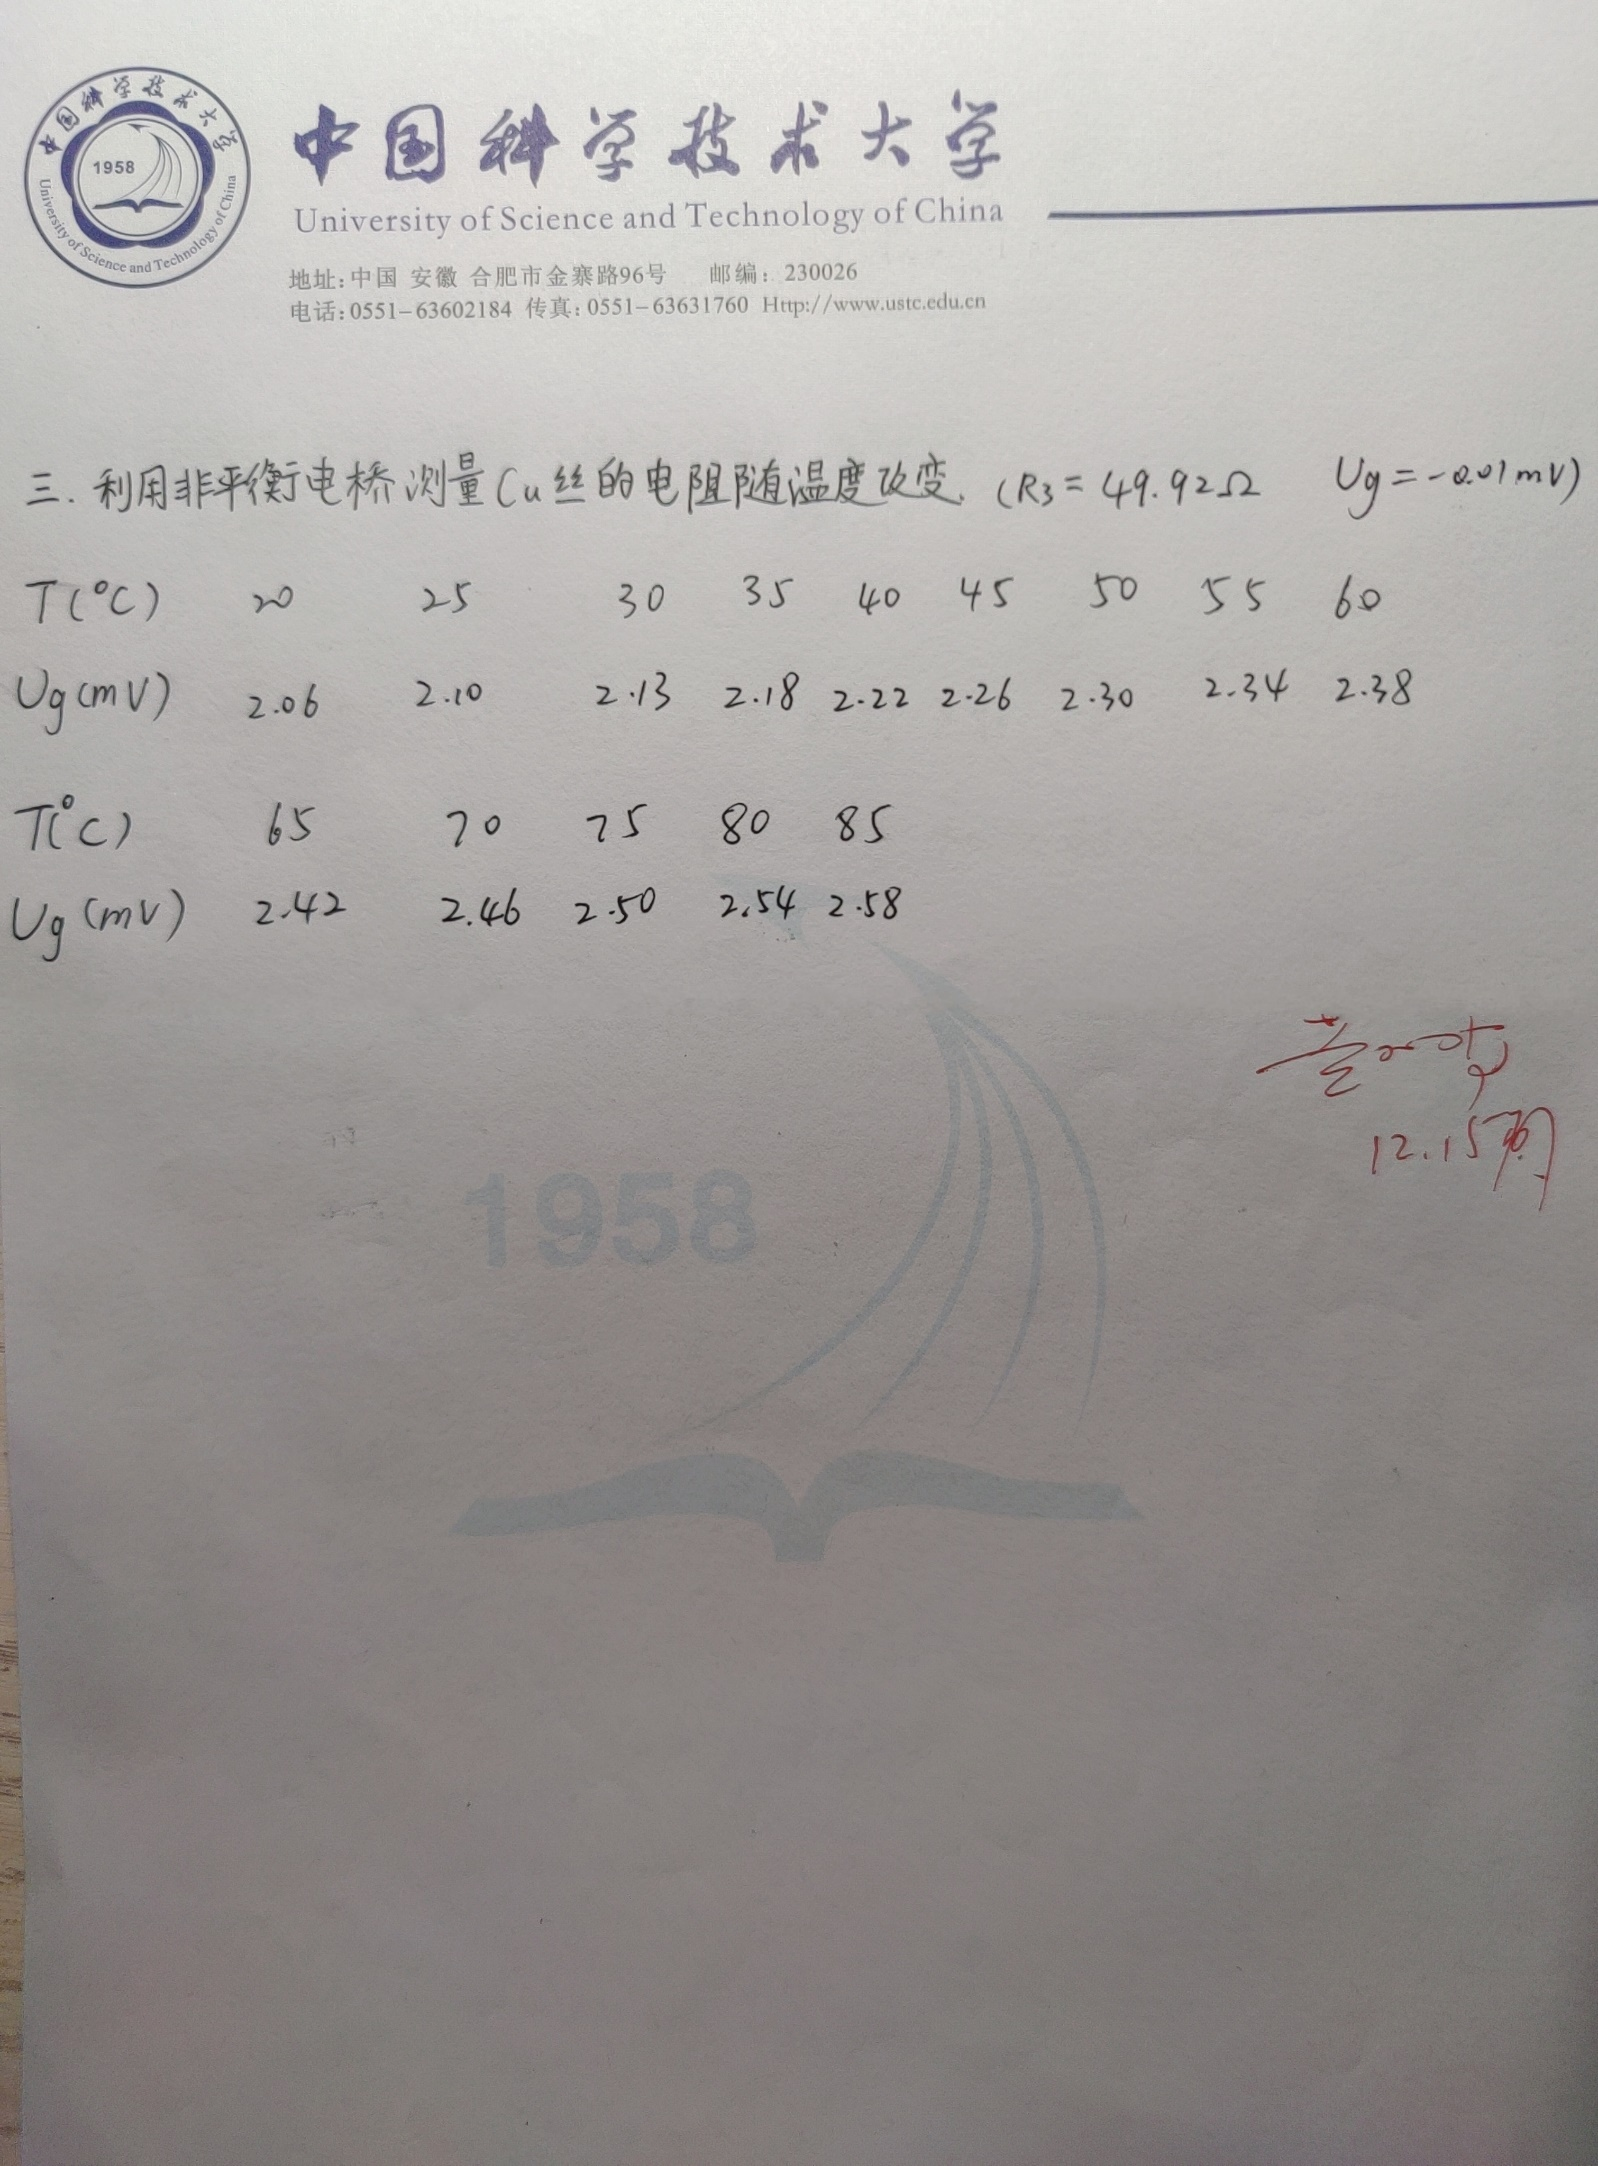 中国科学技术大学
1958
University of Science and Technology of China
中国科学技术大学
University of Science and Technology of China
地址:中国 安徽 合肥市金寨路96号 邮编: 230026
电话:0551-63602184 传真:0551-63631760 Http://www.ustc.edu.cn
三. 利用非平衡电桥测量Cu丝的电阻随温度改变. (R3 = 49.92Ω Ug = -0.01mV)
T(°C) 20 25 30 35 40 45 50 55 60
Ug(mV) 2.06 2.10 2.13 2.18 2.22 2.26 2.30 2.34 2.38
T(°C) 65 70 75 80 85
Ug(mV) 2.42 2.46 2.50 2.54 2.58
12.15
1958